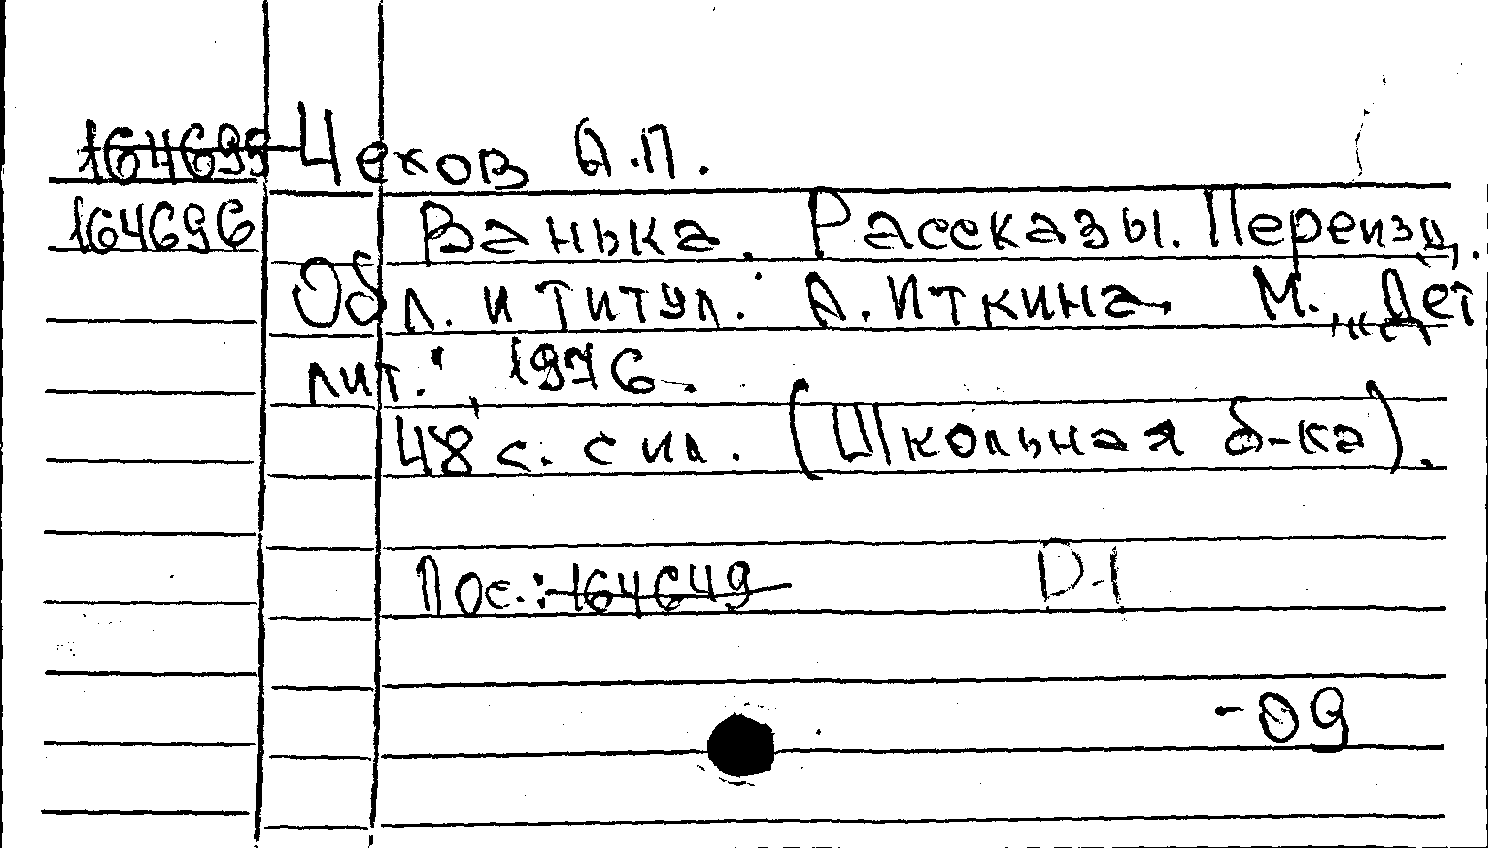 164699 Чехов А.П.
164696 Ванька. Рассказы. Переизд.
Обл. и титул. А. Иткина. М., „Дет
лит.", 1976.
48 с. с ил. (Школьная б-ка).
Пос.: 164649 D-1
-09